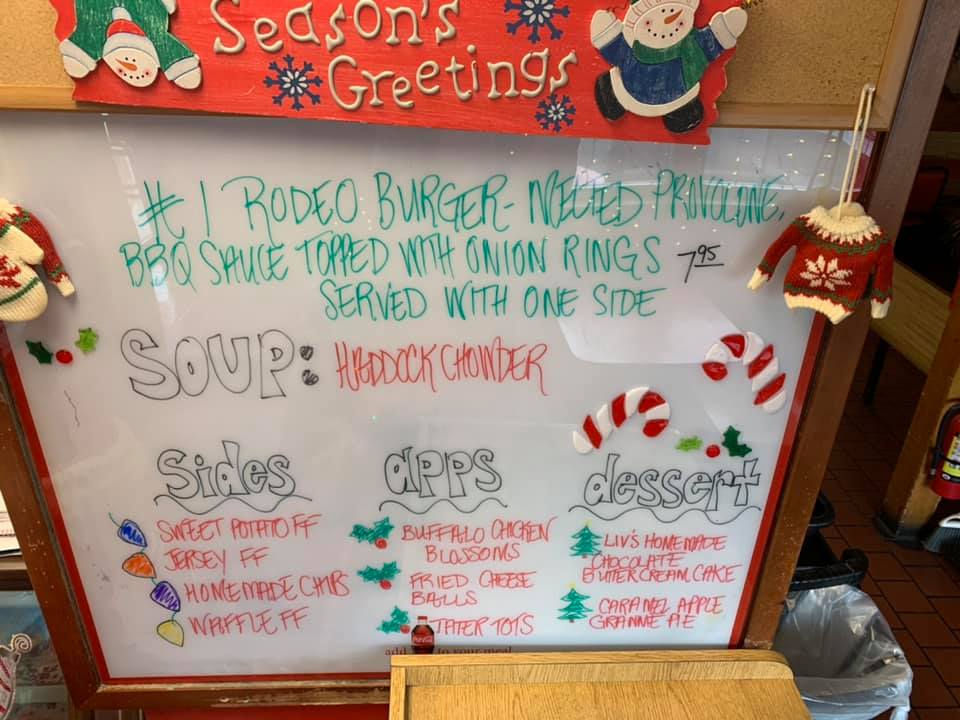 Season's
Greetings
#1 RODEO BURGER- MELTED PROVOLONE,
BBQ SAUCE TOPPED WITH ONION RINGS 7.95
SERVED WITH ONE SIDE
SOUP: HADDOCK CHOWDER
Sides
SWEET POTATO FF
JERSEY FF
HOMEMADE CHIPS
WAFFLE FF
apps
BUFFALO CHICKEN
BLOSSOMS
FRIED CHEESE
BALLS
TATER TOTS
dessert
LIV'S HOMEMADE
CHOCOLATE
BUTTERCREAM CAKE
CARAMEL APPLE
GRANNIE PIE
add to your meal